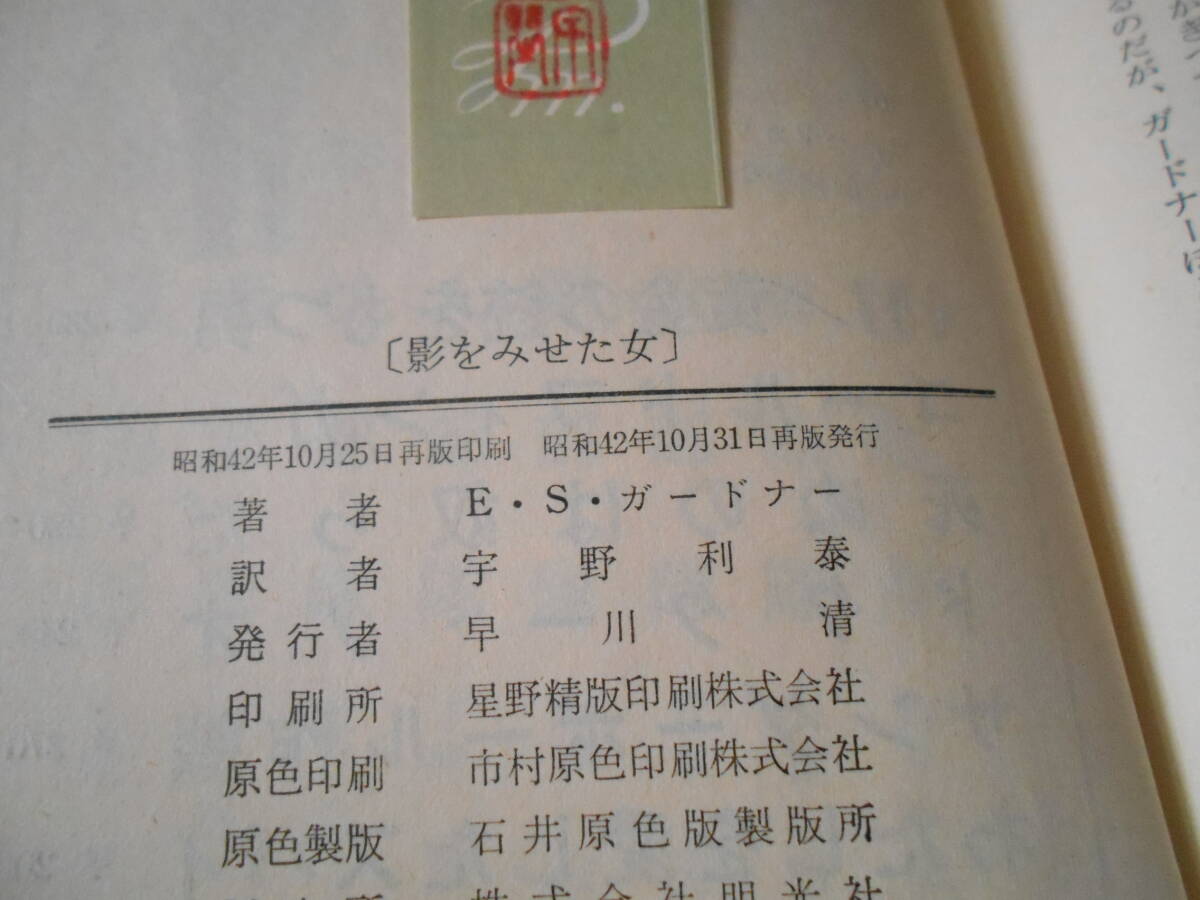 〔影をみせた女〕
昭和42年10月25日再版印刷　昭和42年10月31日再版発行
著者　E・S・ガードナー
訳者　宇野利泰
発行者　早川清
印刷所　星野精版印刷株式会社
原色印刷　市村原色印刷株式会社
原色製版　石井原色版製版所
株式会社明光社
るのだが、ガードナーは